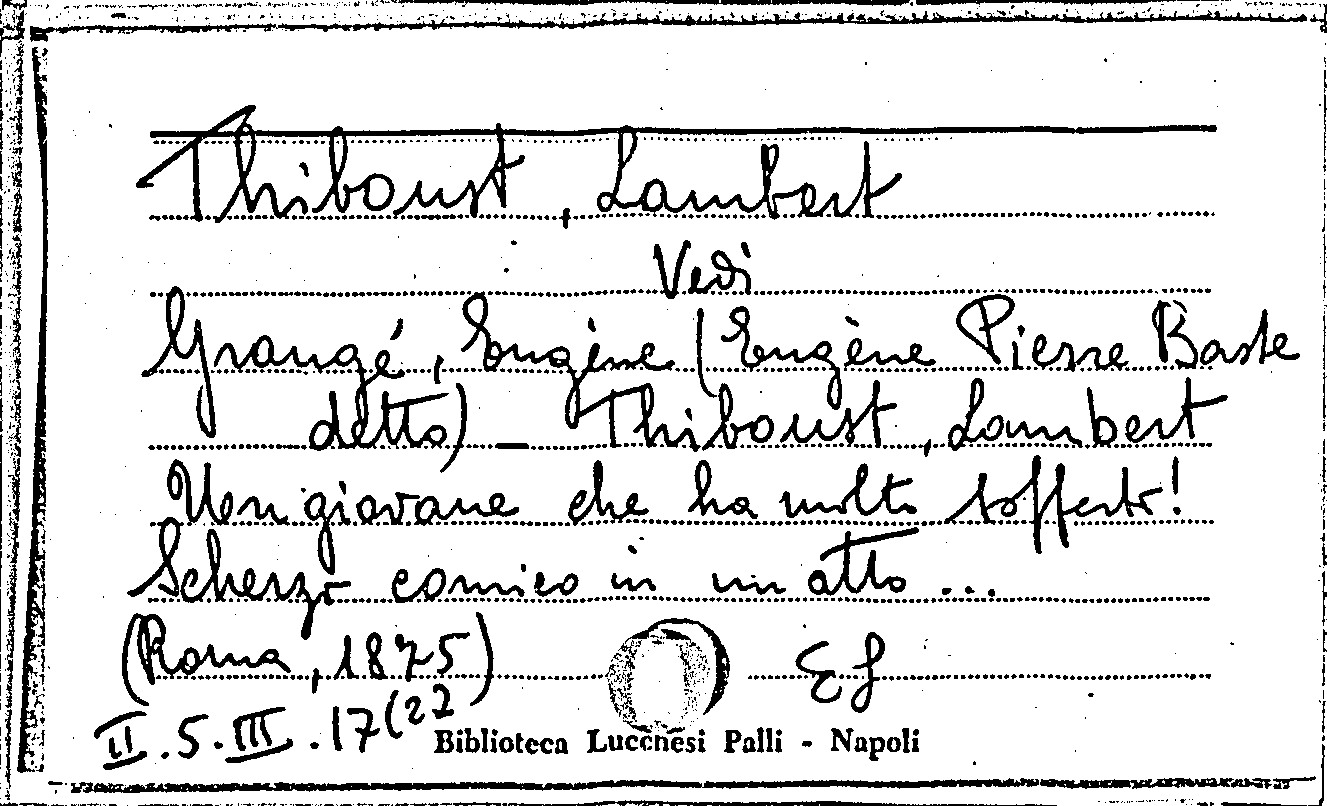 Thiboust, Lambert
Vedi
Grangé, Eugène (Eugène Pierre Baste
detto) - Thiboust, Lambert
Un giovane che ha molto sofferto!
Scherzo comico in un atto ...
(Roma, 1875)
Ef
II.5.III.17(27
Biblioteca Lucchesi Palli - Napoli